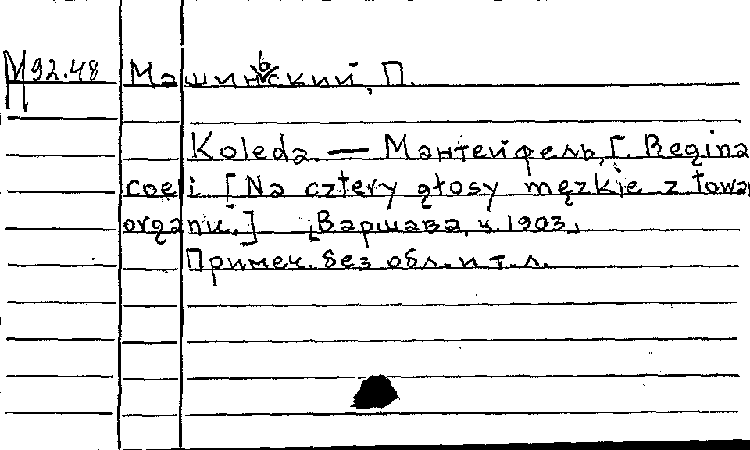 М92.48 Машиньский, П.
Koleda. — Мантейфель, Г. Regina
coeli [Na cztery głosy męzkie z towar
organu.] [Варшава, ц. 1903]
Примеч. без обл. и т.л.